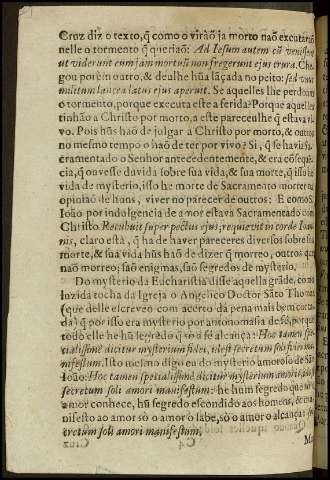 Cruz diz o texto, q̃ como o virão ja morto naõ excutarão
nelle o tormento q̃ queriaõ: Ad Iesum autem cũ venissent
ut viderunt eum jam mortuũ non fregerunt ejus crura. Che
gou porèm outro, & deulhe hũa lãçada no peito: sed unus
militum lancea latus ejus aperuit. Se aquelles lhe perdoaõ
o tormento, porque executa este a ferida? Porque aquelles
tinhão a Christo por morto, a este pareceulhe q̃ estava vi-
vo. Pois hũs haõ de julgar a Christo por morto, & outros
no mesmo tempo o haõ de ter por vivo? Si, q̃ se havia Sa-
cramentado o Senhor antecedentemente, & era cõsequẽ-
cia, q̃ ouvesse duvida sobre sua vida, & sua morte, q̃ isso he
vida de mysterio, isso he morte de Sacramento morrer na
opiniaõ de huns, viver no parecer de outros: E como S.
Ioão por indulgencia de amor estava Sacramentado com
Christo. Recubuit super pectus ejus; requievit in corde Ioan-
nis, claro està, q̃ ha de haver pareceres diversos sobre sua
morte, & sua vida hũs haõ de dizer q̃ morreo, outros que
naõ morreo; saõ enigmas, saõ segredos de mysterio.
Do mysterio da Eucharistia disse aquella grãde, como
luzida tocha da Igreja o Angelico Doctor Santo Thomas
(que delle escreveo com acerto da pena mais bem corta-
da) q̃ por isso era mysterio por antonomasia de Fè, porque
todo elle he hũ segredo q̃ sò a fè alcança: Hoc tamen spe-
cialissimè dicitur mysterium fidei, idest secretum soli fidei ma-
nifestum. Isto mesmo digo eu do mysterio amoroso de São
Ioão: Hoc tamen specialissimè dicitur mysterium amoris, idest
secretum soli amori manifestum: he hum segredo que sò o
amor conhece, hũ segredo escondido aos homens, & ma-
nifesto ao amor sò o amor o sabe, sò o amor o alcança: se-
cretum soli amori manifestum.